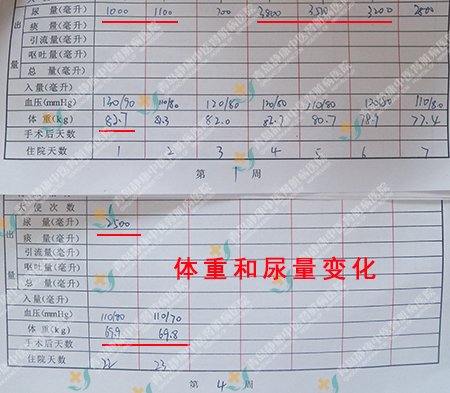 尿 量(毫升) 1000 1100 700 3800 3500 3200 2800
出 痰 量(毫升)
引流量(毫升)
呕吐量(毫升)
量 总 量(毫升)
入量(毫升)
血压(mmHg) 120/90 110/80 120/80 120/80 110/80 120/80 110/80
体 重(kg) 82.7 82.3 82.0 82.7 80.7 78.9 77.4
手术后天数
住院天数 1 2 3 4 5 6 7
第 1 周
大 便 次 数
尿 量(毫升) 2500
出 痰 量(毫升)
引流量(毫升)
呕吐量(毫升)
量 总 量(毫升)
体重和尿量变化
入量(毫升)
血压(mmHg) 110/80 110/70
体 重(kg) 69.9 69.8
手术后天数
住院天数 22 23
第 4 周